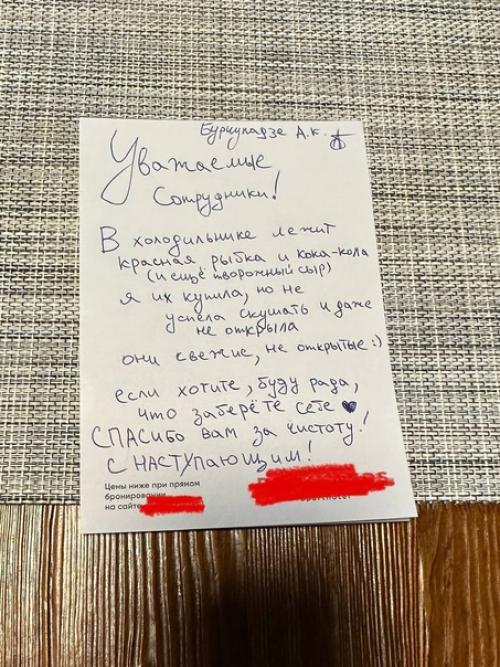 Бурчуладзе А.К.
Уважаемые
Сотрудники!
В холодильнике лежит
красная рыбка и кока-кола
(и ещё творожный сыр)
я их купила, но не
успела скушать и даже
не открыла
они свежие, не открытые :)
если хотите, буду рада,
что заберёте себе
СПАСИБО вам за чистоту!
С НАСТУПАЮЩИМ!
Цены ниже при прямом
бронировании
на сайте